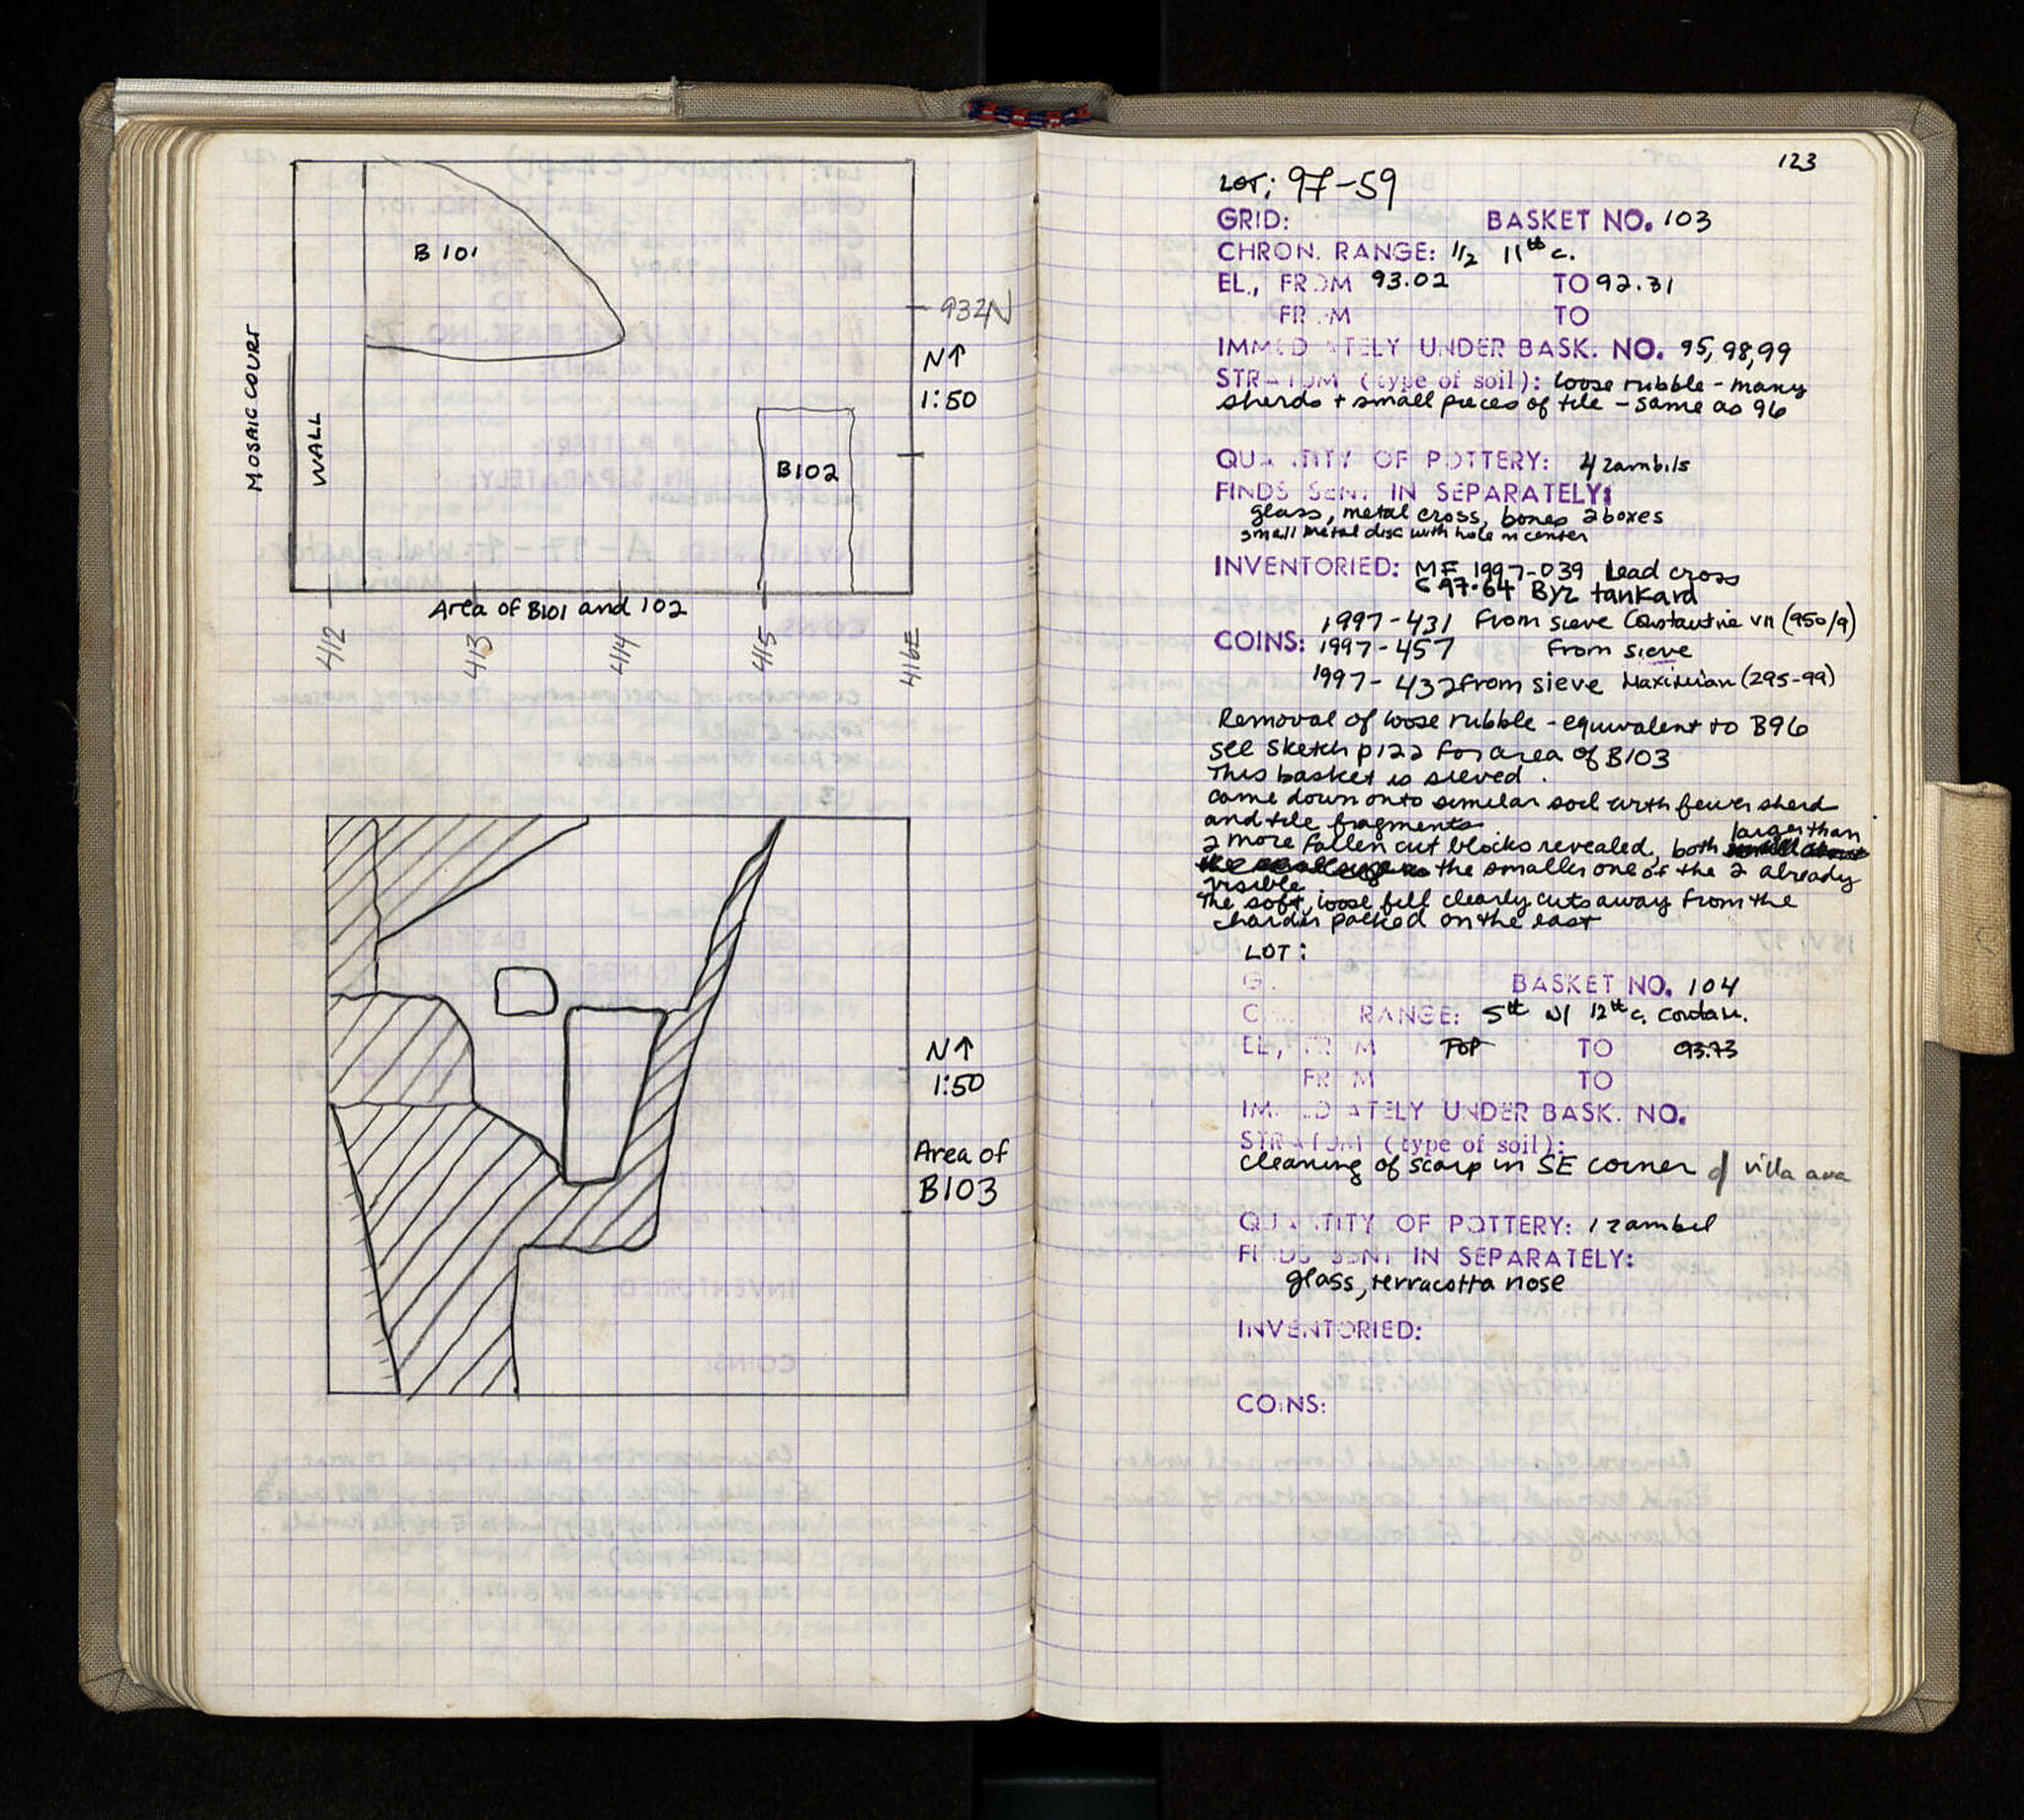 B 101
932N
N↑
1:50
MOSAIC COURT
WALL
B102
Area of B101 and 102
412
413
414
415
416E
N↑
1:50
Area of
B103
123
LOT: 97-59
GRID: BASKET NO. 103
CHRON. RANGE: 1/2 11th c.
EL., FROM 93.02 TO 92.31
FROM TO
IMMEDIATELY UNDER BASK. NO. 95, 98, 99
STRATUM (type of soil): loose rubble - many
sherds + small pieces of tile - same as 96
QUANTITY OF POTTERY: 4 zambils
FINDS SENT IN SEPARATELY:
glass, metal cross, bones 2 boxes
small metal disc with hole in center
INVENTORIED: MF 1997-039 Lead cross
C 97-64 Byz tankard
1997-431 From sieve Constantine VII (950/9)
COINS: 1997-457 From sieve
1997-432 From sieve Maximian (295-99)
Removal of loose rubble - equivalent to B96
see sketch p122 for area of B103
This basket is sieved.
came down onto similar soil with fewer sherd
and tile fragments
larger than
2 more fallen cut blocks revealed, both
the smaller one of the 2 already
visible
The soft, loose fill clearly cuts away from the
harder packed on the east
LOT:
G. BASKET NO. 104
C RANGE: 5th w/ 12th c. contam.
EL., FROM TOP TO 93.73
FROM TO
IMMEDIATELY UNDER BASK. NO.
STRATUM (type of soil):
cleaning of scarp in SE corner of villa area
QUANTITY OF POTTERY: 1 zambil
FINDS SENT IN SEPARATELY:
glass, terracotta nose
INVENTORIED:
COINS: